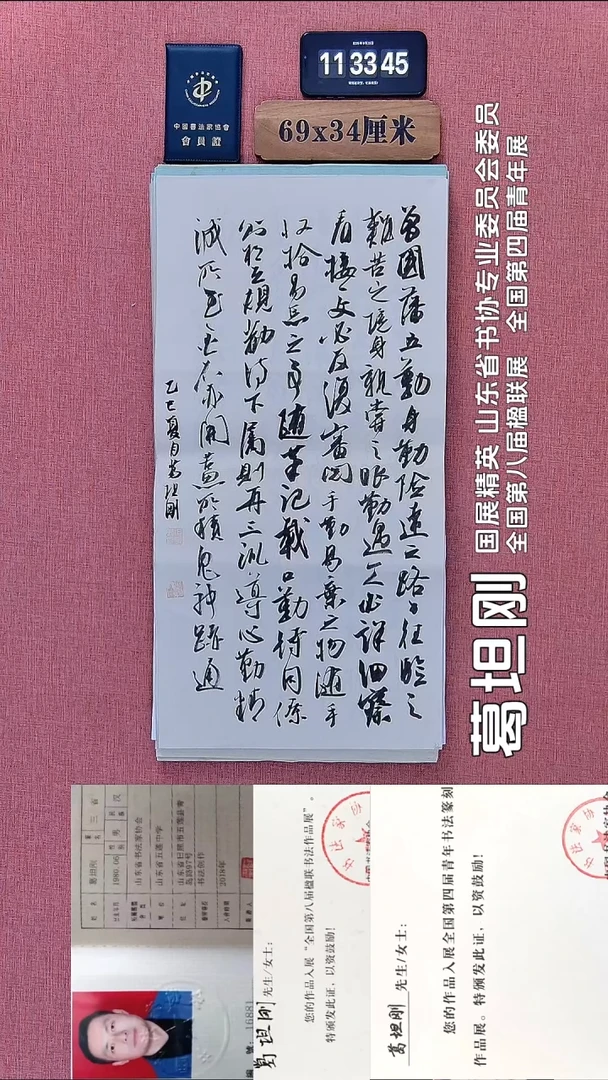 11 33 45
中國書法家協會
會員證
69x34厘米
曾國藩五勤身勤险遠之路身往驗之
艱苦之境身親嘗之眼勤遇一人必詳细察
看接一文必反復審閱手勤易棄之物随手
收拾易忘之事随筆記載口勤待同僚
則互相規勸待下属則再三訓導心勤精
誠所至金石亦開所積鬼神跡通
乙巳夏月葛坦剛
葛坦刚
国展精英 山东省书协专业委员会委员
全国第八届楹联展 全国第四届青年展
姓名 葛坦刚
山东省书法家协会
山东省五莲中学
山东省日照市五莲县常
书法创作
2018年
16881
葛坦刚 先生/女士：
您的作品入展“全国第八届楹联书法作品展”。
特颁发此证，以资鼓励！
葛坦刚 先生/女士：
您的作品入展全国第四届青年书法篆刻
作品展。特颁发此证，以资鼓励！